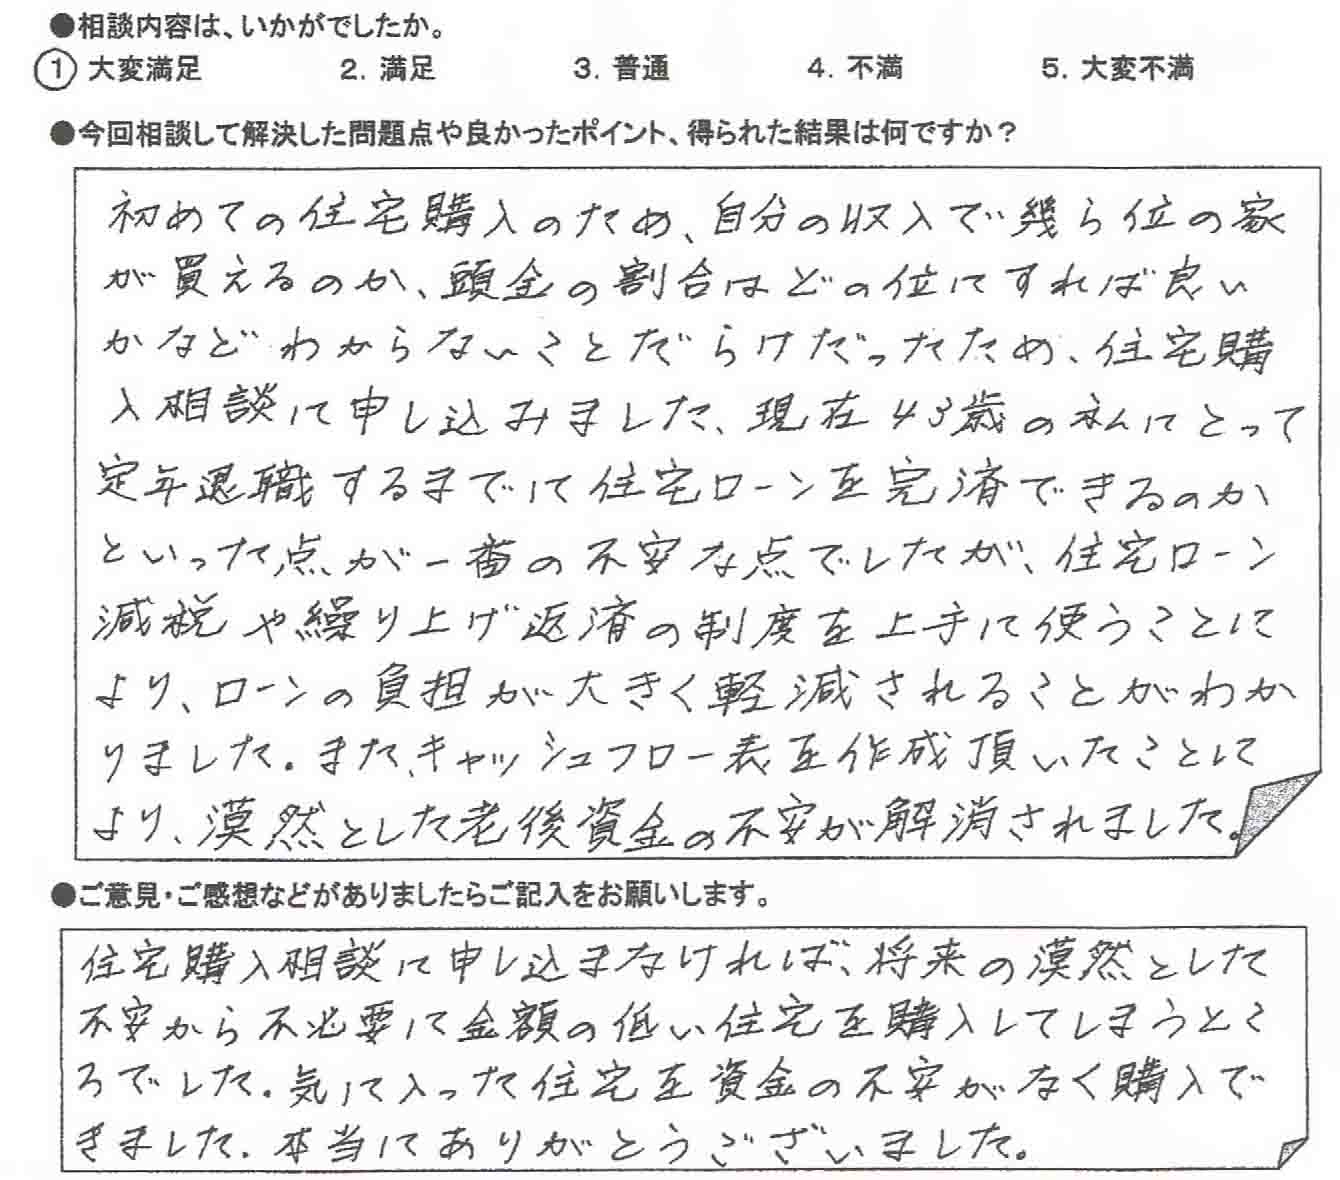 ●相談内容は、いかがでしたか。
① 大変満足 2. 満足 3. 普通 4. 不満 5. 大変不満
●今回相談して解決した問題点や良かったポイント、得られた結果は何ですか？
初めての住宅購入のため、自分の収入で幾ら位の家
が買えるのか、頭金の割合はどの位にすれば良い
かなどわからないことだらけだったため、住宅購
入相談に申し込みました、現在43歳の私にとって
定年退職するまでに住宅ローンを完済できるのか
といった点が一番の不安な点でしたが、住宅ローン
減税や繰り上げ返済の制度を上手に使うことに
より、ローンの負担が大きく軽減されることがわか
りました。また、キャッシュフロー表を作成頂いたことに
より、漠然とした老後資金の不安が解消されました。
●ご意見・ご感想などがありましたらご記入をお願いします。
住宅購入相談に申し込まなければ、将来の漠然とした
不安から不必要に金額の低い住宅を購入してしまうとこ
ろでした。気に入った住宅を資金の不安がなく購入で
きました。本当にありがとうございました。